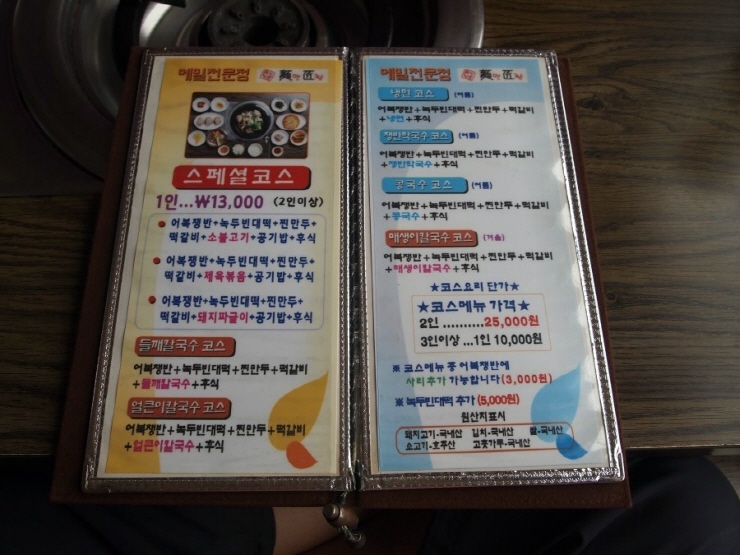 메밀전문점 麵 匠
스페셜코스
1인...₩13,000 (2인이상)
어복쟁반+녹두빈대떡+찐만두+
떡갈비+소불고기+공기밥+후식
어복쟁반+녹두빈대떡+찐만두+
떡갈비+제육볶음+공기밥+후식
어복쟁반+녹두빈대떡+찐만두+
떡갈비+돼지짜글이+공기밥+후식
들깨칼국수 코스
어복쟁반+녹두빈대떡+찐만두+떡갈비
+들깨칼국수+후식
얼큰이칼국수 코스
어복쟁반+녹두빈대떡+찐만두+떡갈비
+얼큰이칼국수+후식
메밀전문점 麵 匠
냉면 코스 (여름)
어복쟁반+녹두빈대떡+찐만두+떡갈비
+냉면+후식
쟁반막국수 코스 (여름)
어복쟁반+녹두빈대떡+찐만두+떡갈비
+쟁반막국수+후식
콩국수 코스 (여름)
어복쟁반+녹두빈대떡+찐만두+떡갈비
+콩국수+후식
매생이칼국수 코스 (겨울)
어복쟁반+녹두빈대떡+찐만두+떡갈비
+매생이칼국수+후식
★코스요리 단가★
★코스메뉴 가격★
2인 ..........25,000원
3인이상 ...1인 10,000원
※ 코스메뉴 중 어복쟁반에
사리추가 가능합니다(3,000원)
※ 녹두빈대떡 추가 (5,000원)
원산지표시
돼지고기-국내산 김치-국내산 쌀-국내산
쇠고기-호주산 고춧가루-국내산